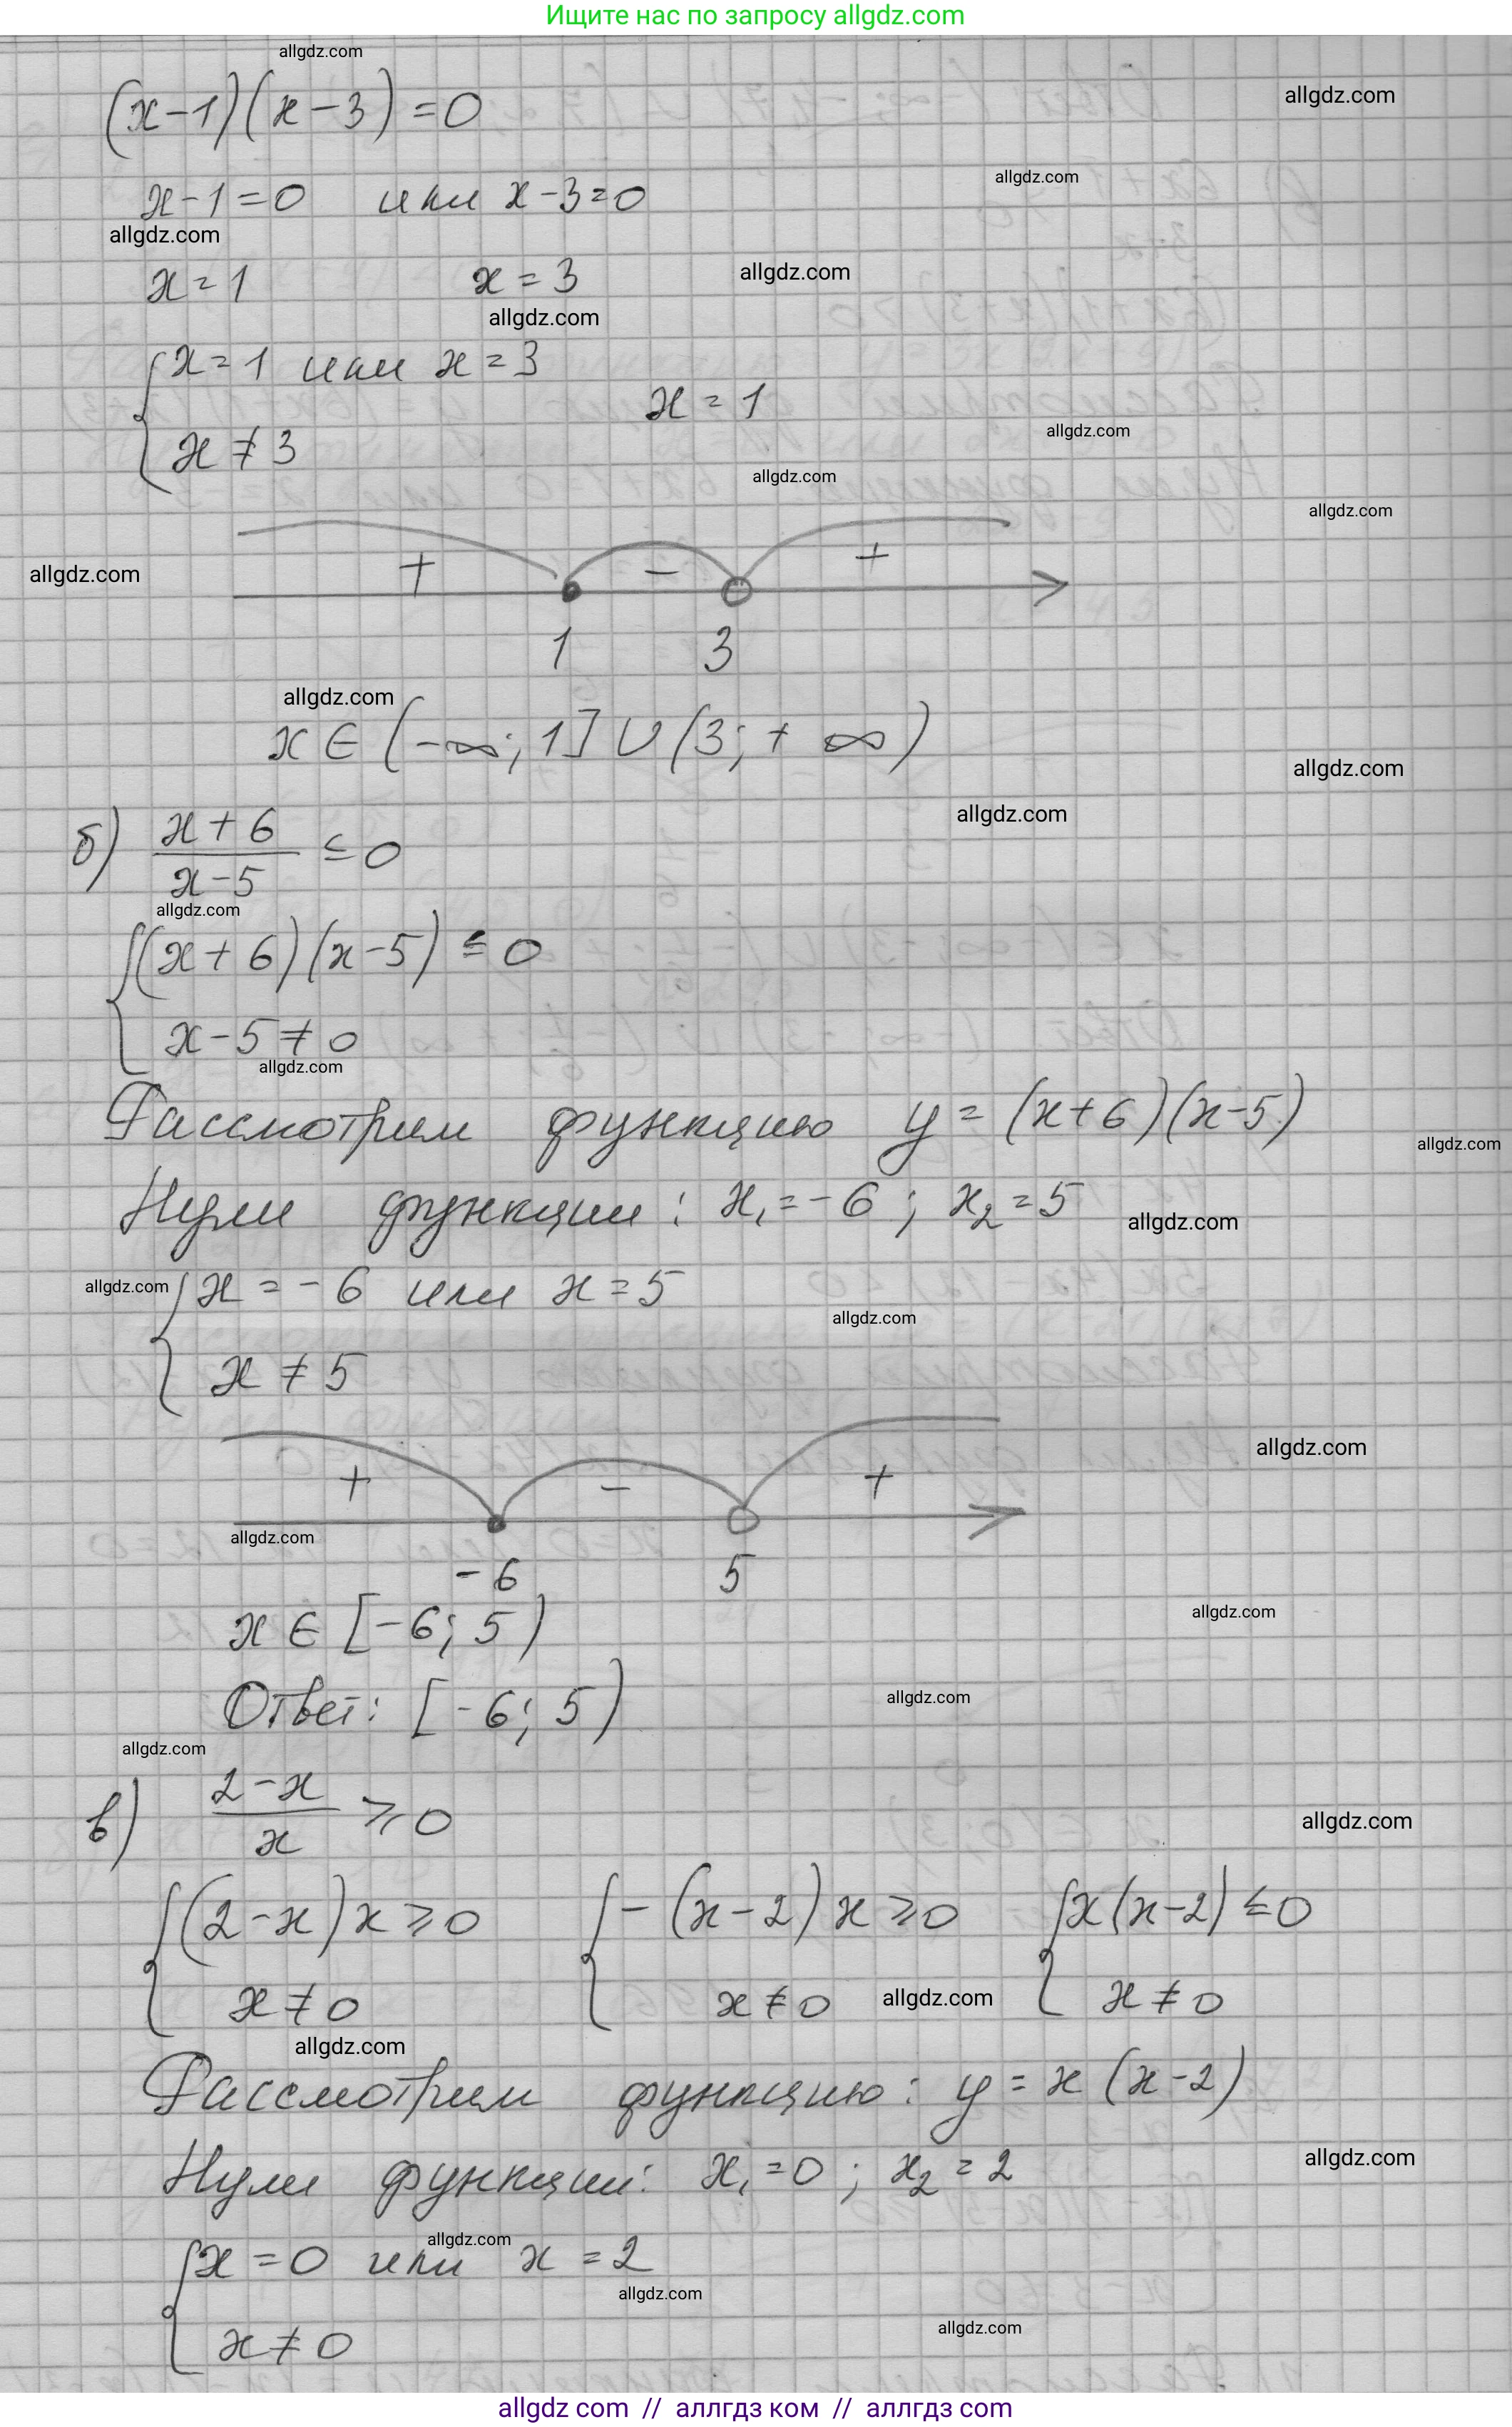 Ищите нас по запросу allgdz.com
allgdz.com
(x-1)(x-3)=0
allgdz.com
allgdz.com
x-1=0 или x-3=0
allgdz.com
x=1 x=3
allgdz.com
allgdz.com
{x=1 или x=3
x≠3
x=1
allgdz.com
allgdz.com
allgdz.com
+ - +
allgdz.com
1 3
allgdz.com
x∈(-∞;1]∪(3;+∞)
allgdz.com
allgdz.com
б) (x+6)/(x-5) ≤0
allgdz.com
{(x+6)(x-5)≤0
x-5≠0
allgdz.com
Рассмотрим функцию y=(x+6)(x-5)
allgdz.com
Нули функции: x₁=-6; x₂=5
allgdz.com
allgdz.com
{x=-6 или x=5
allgdz.com
x≠5
allgdz.com
+ - +
allgdz.com
-6 5
x∈[-6;5)
allgdz.com
Ответ: [-6;5)
allgdz.com
allgdz.com
в) (2-x)/x ≥0
allgdz.com
{(2-x)x≥0 {-(x-2)x≥0 {x(x-2)≤0
x≠0 x≠0 x≠0
allgdz.com
allgdz.com
Рассмотрим функцию: y=x(x-2)
Нули функции: x₁=0; x₂=2
allgdz.com
allgdz.com
{x=0 или x=2
allgdz.com
x≠0
allgdz.com
allgdz com // аллгдз ком // аллгдз com